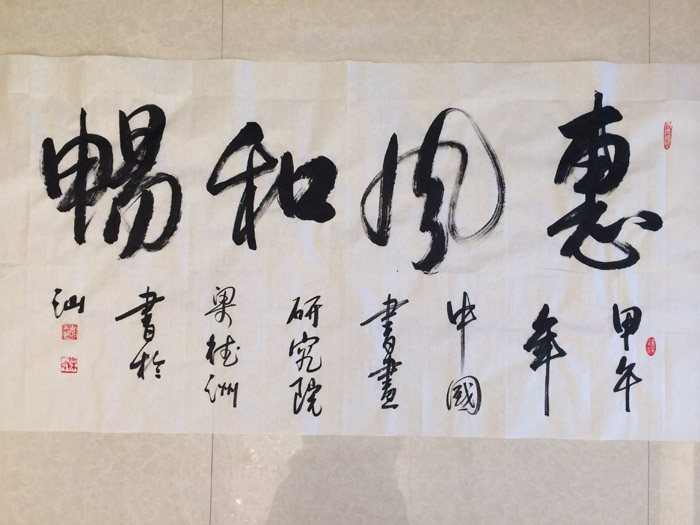 惠風和暢
甲午
年
中國
書畫
研究院
梁桂洲
書於
汕